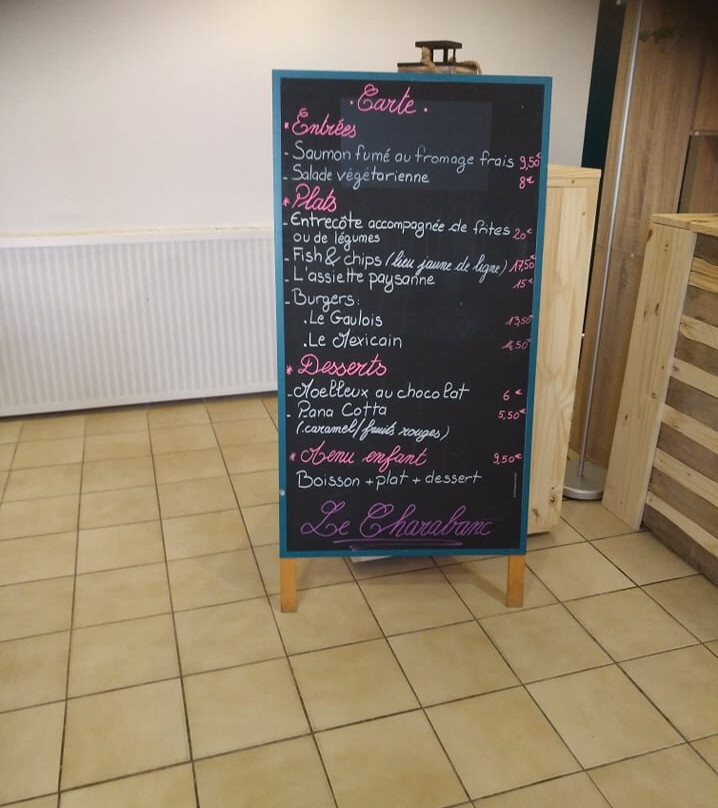 . Carte .
* Entrées
- Saumon fumé au fromage frais 9,50€
- Salade végétarienne 8€
* Plats
- Entrecôte accompagnée de frites 20€
ou de légumes
- Fish & chips (lieu jaune de ligne) 17,50€
- L'assiette paysanne 15€
- Burgers:
. Le Gaulois 13,50€
. Le Mexicain
* Desserts
- Moelleux au chocolat 6€
- Pana Cotta 5,50€
(caramel/fruits rouges)
* Menu enfant 9,50€
Boisson + plat + dessert
Le Charabanc